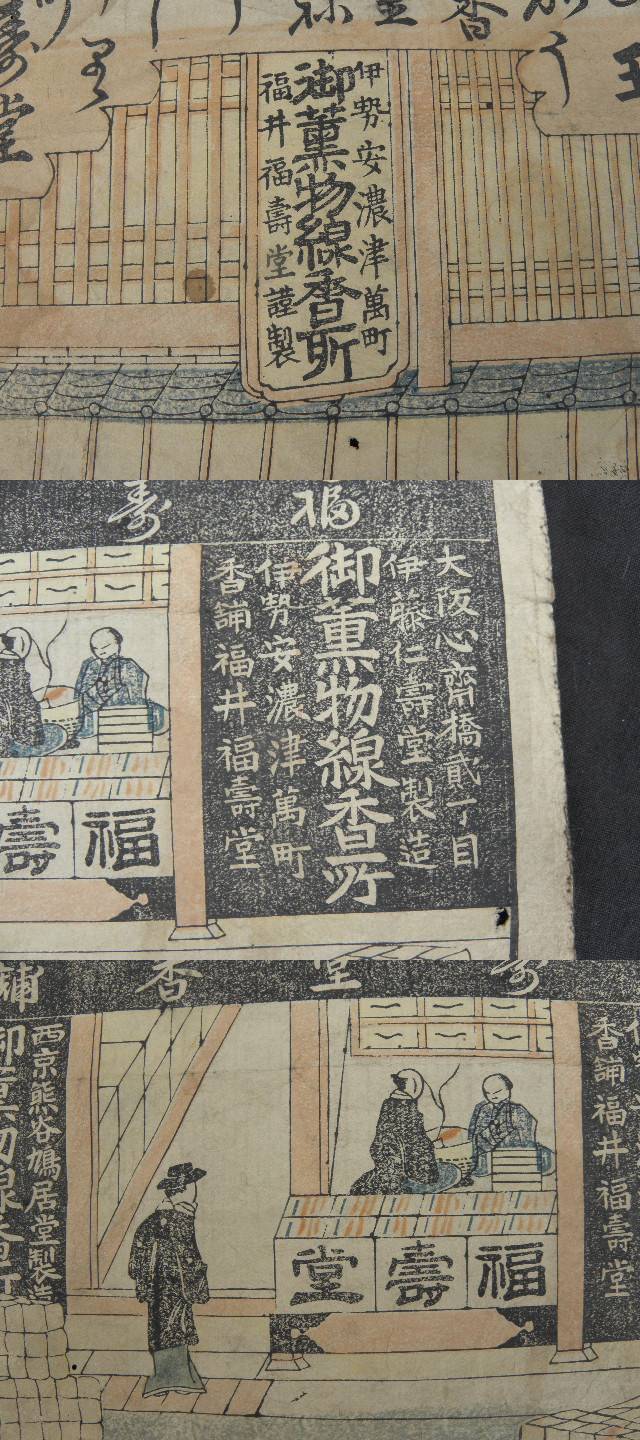 香
伊勢安濃津萬町
御薫物線香所
福井福壽堂謹製
堂
福
大阪心齋橋貳丁目
伊藤仁壽堂製造
御薫物線香所
伊勢安濃津萬町
香舗福井福壽堂
福
壽
堂
香
舗
香舗福井福壽堂
福
壽
堂
西京熊谷鳩居堂製造
御薫物線香所